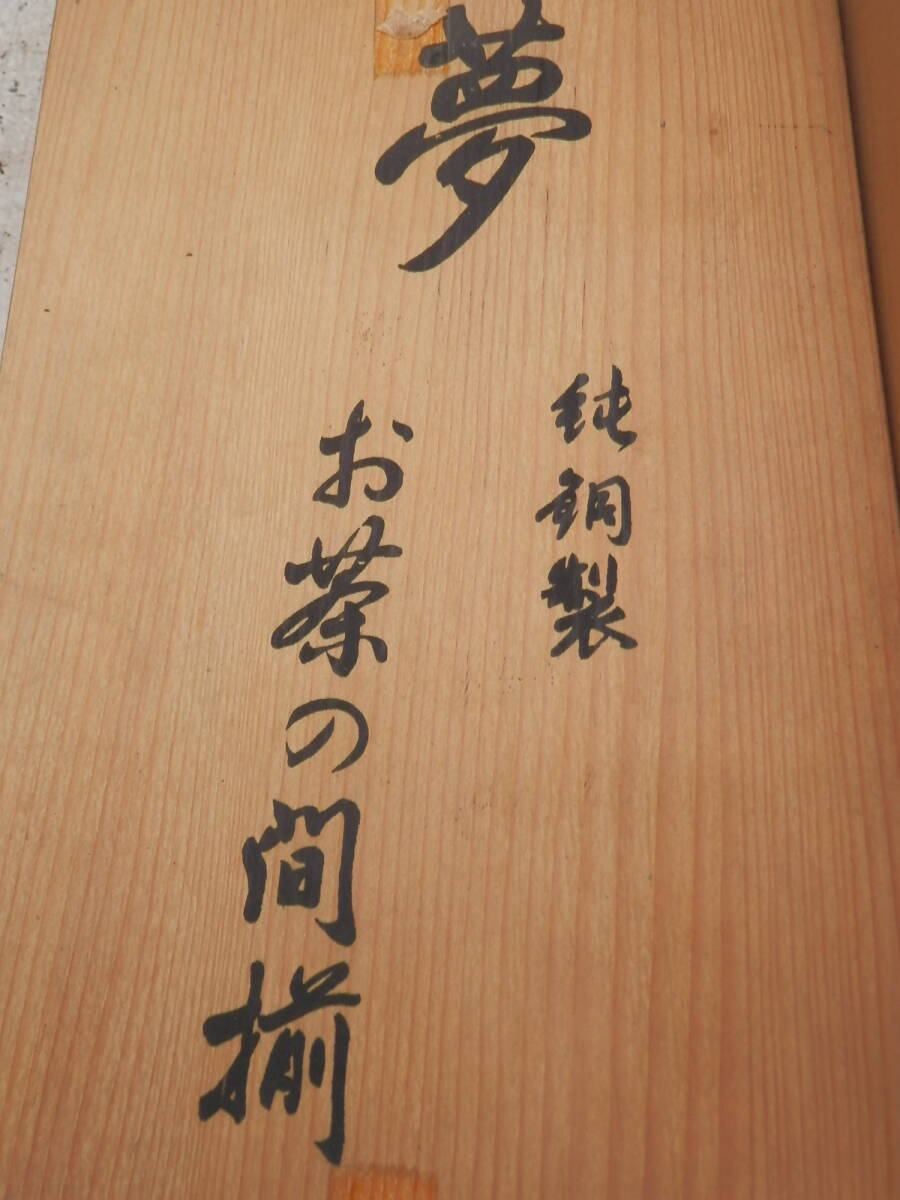 夢
純銅製
お茶の間揃